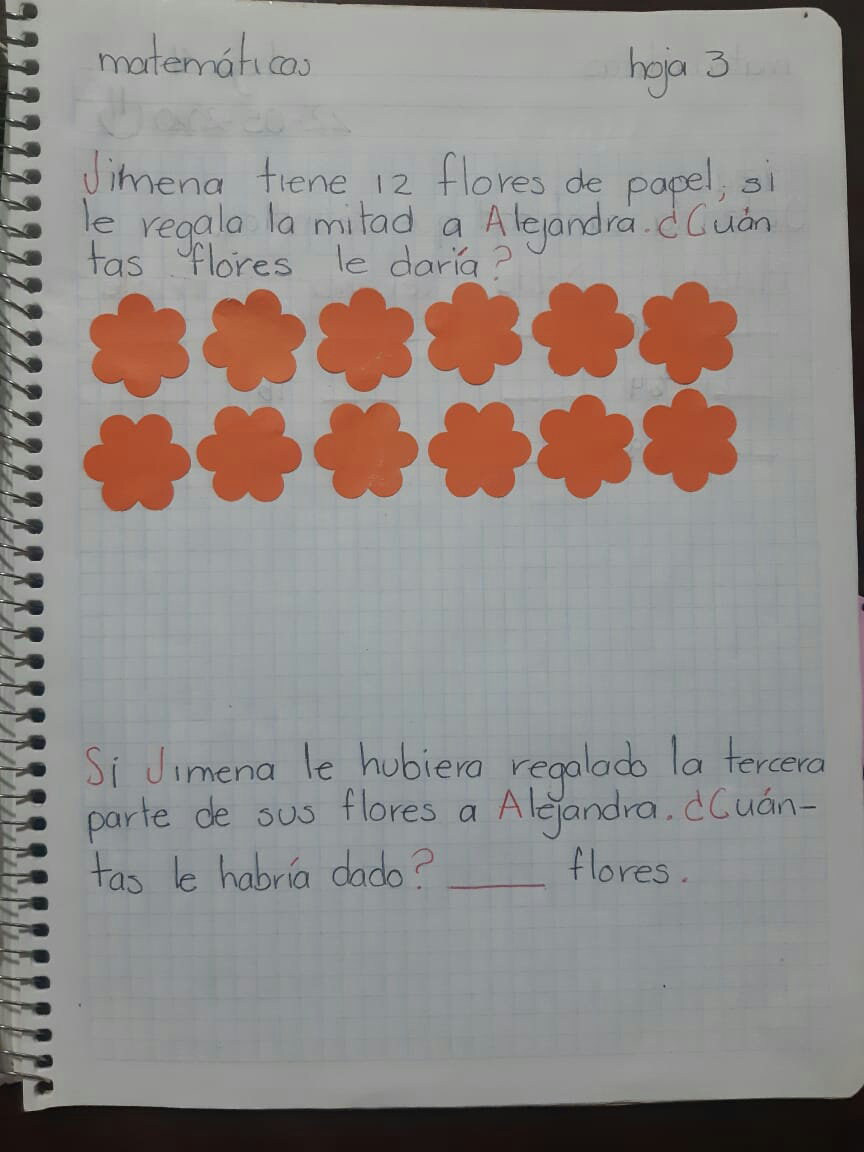 matemáticas hoja 3
Jimena tiene 12 flores de papel, si
le regala la mitad a Alejandra. ¿Cuán
tas flores le daría?
Si Jimena le hubiera regalado la tercera
parte de sus flores a Alejandra. ¿Cuán-
tas le habría dado? _____ flores.